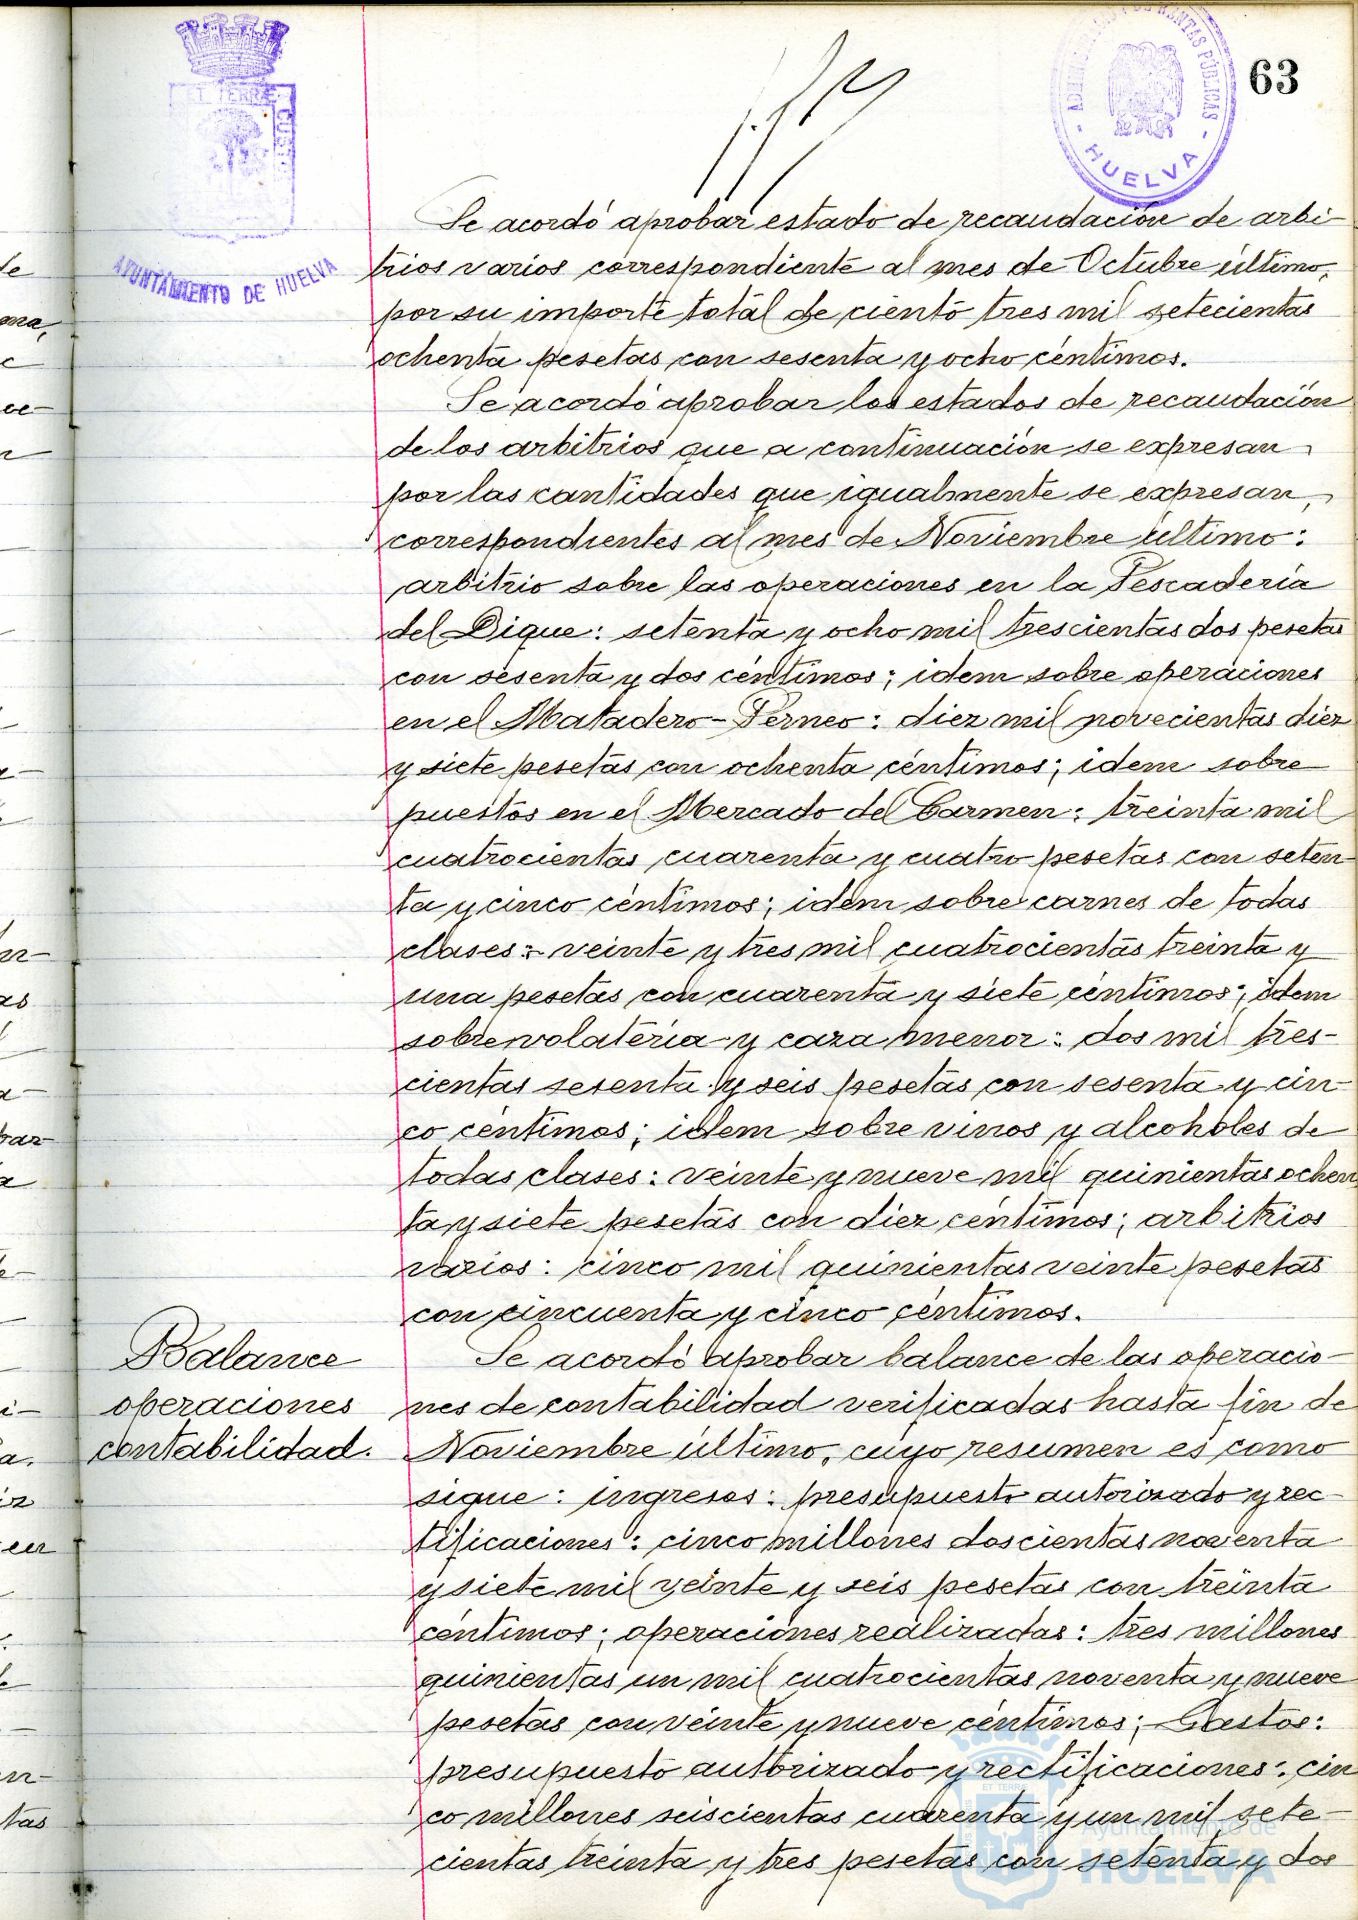 63
ET TERRÆ CUSTO
AYUNTAMIENTO DE HUELVA
RENTAS PÚBLICAS
- HUELVA -
Se acordó aprobar estado de recaudación de arbi-
trios varios correspondiente al mes de Octubre último,
por su importe total de ciento tres mil setecientas
ochenta pesetas con sesenta y ocho céntimos.
Se acordó aprobar los estados de recaudación
de los arbitrios que a continuación se expresan,
por las cantidades que igualmente se expresan,
correspondientes al mes de Noviembre último:
arbitrio sobre las operaciones en la Pescadería
del Dique: setenta y ocho mil trescientas dos pesetas
con sesenta y dos céntimos; idem sobre operaciones
en el Matadero-Perneo: diez mil novecientas diez
y siete pesetas con ochenta céntimos; idem sobre
puestos en el Mercado del Carmen: treinta mil
cuatrocientas cuarenta y cuatro pesetas con seten-
ta y cinco céntimos; idem sobre carnes de todas
clases: veinte y tres mil cuatrocientas treinta y
una pesetas con cuarenta y siete céntimos; idem
sobre volatería y caza menor: dos mil tres-
cientas sesenta y seis pesetas con sesenta y cin-
co céntimos; idem sobre vinos y alcoholes de
todas clases: veinte y nueve mil quinientas ochen
ta y siete pesetas con diez céntimos; arbitrios
varios: cinco mil quinientas veinte pesetas
con cincuenta y cinco céntimos.
Balance
operaciones
contabilidad.
Se acordó aprobar balance de las operacio-
nes de contabilidad verificadas hasta fin de
Noviembre último, cuyo resumen es como
sigue: ingresos: presupuesto autorizado y rec-
tificaciones: cinco millones doscientas noventa
y siete mil veinte y seis pesetas con treinta
céntimos; operaciones realizadas: tres millones
quinientas un mil cuatrocientas noventa y nueve
pesetas con veinte y nueve céntimos; Gastos:
presupuesto autorizado y rectificaciones: cin
co millones seiscientas cuarenta y un mil sete-
cientas treinta y tres pesetas con setenta y dos
ET TERRÆ
Ayuntamiento de
HUELVA